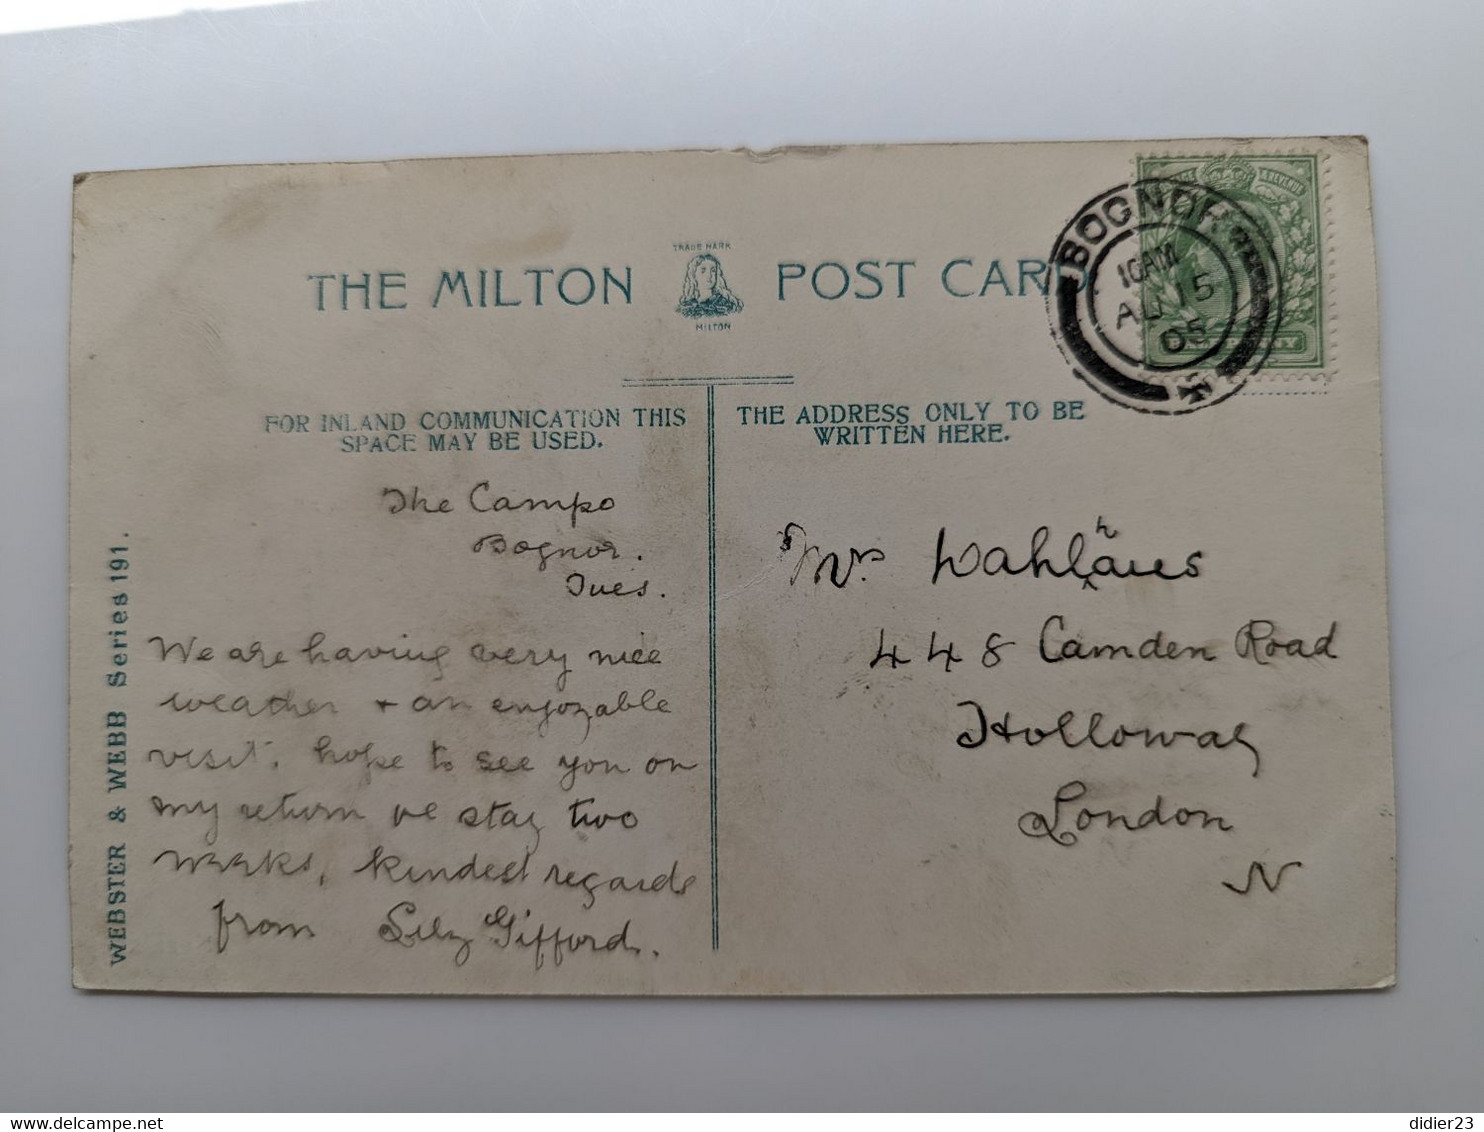 THE MILTON
TRADE MARK
MILTON
POST CARD.
BOGNOR
10 AM
AU 15
05
FOR INLAND COMMUNICATION THIS
SPACE MAY BE USED.
THE ADDRESS ONLY TO BE
WRITTEN HERE.
WEBSTER & WEBB Series 191.
The Campo
Bognor.
Tues.
We are having very nice
weather + an enjoyable
visit. hope to see you on
my return we stay two
weeks, kindest regards
from Gifford.
Mrs
448 Camden Road
Holloway
London
N
didier23